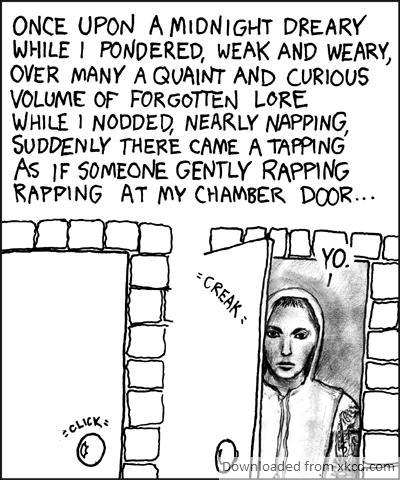 ONCE UPON A MIDNIGHT DREARY
WHILE I PONDERED, WEAK AND WEARY,
OVER MANY A QUAINT AND CURIOUS
VOLUME OF FORGOTTEN LORE
WHILE I NODDED, NEARLY NAPPING,
SUDDENLY THERE CAME A TAPPING
AS IF SOMEONE GENTLY RAPPING
RAPPING AT MY CHAMBER DOOR...
=CLICK=
=CREAK=
YO.
Downloaded from xkcd.com